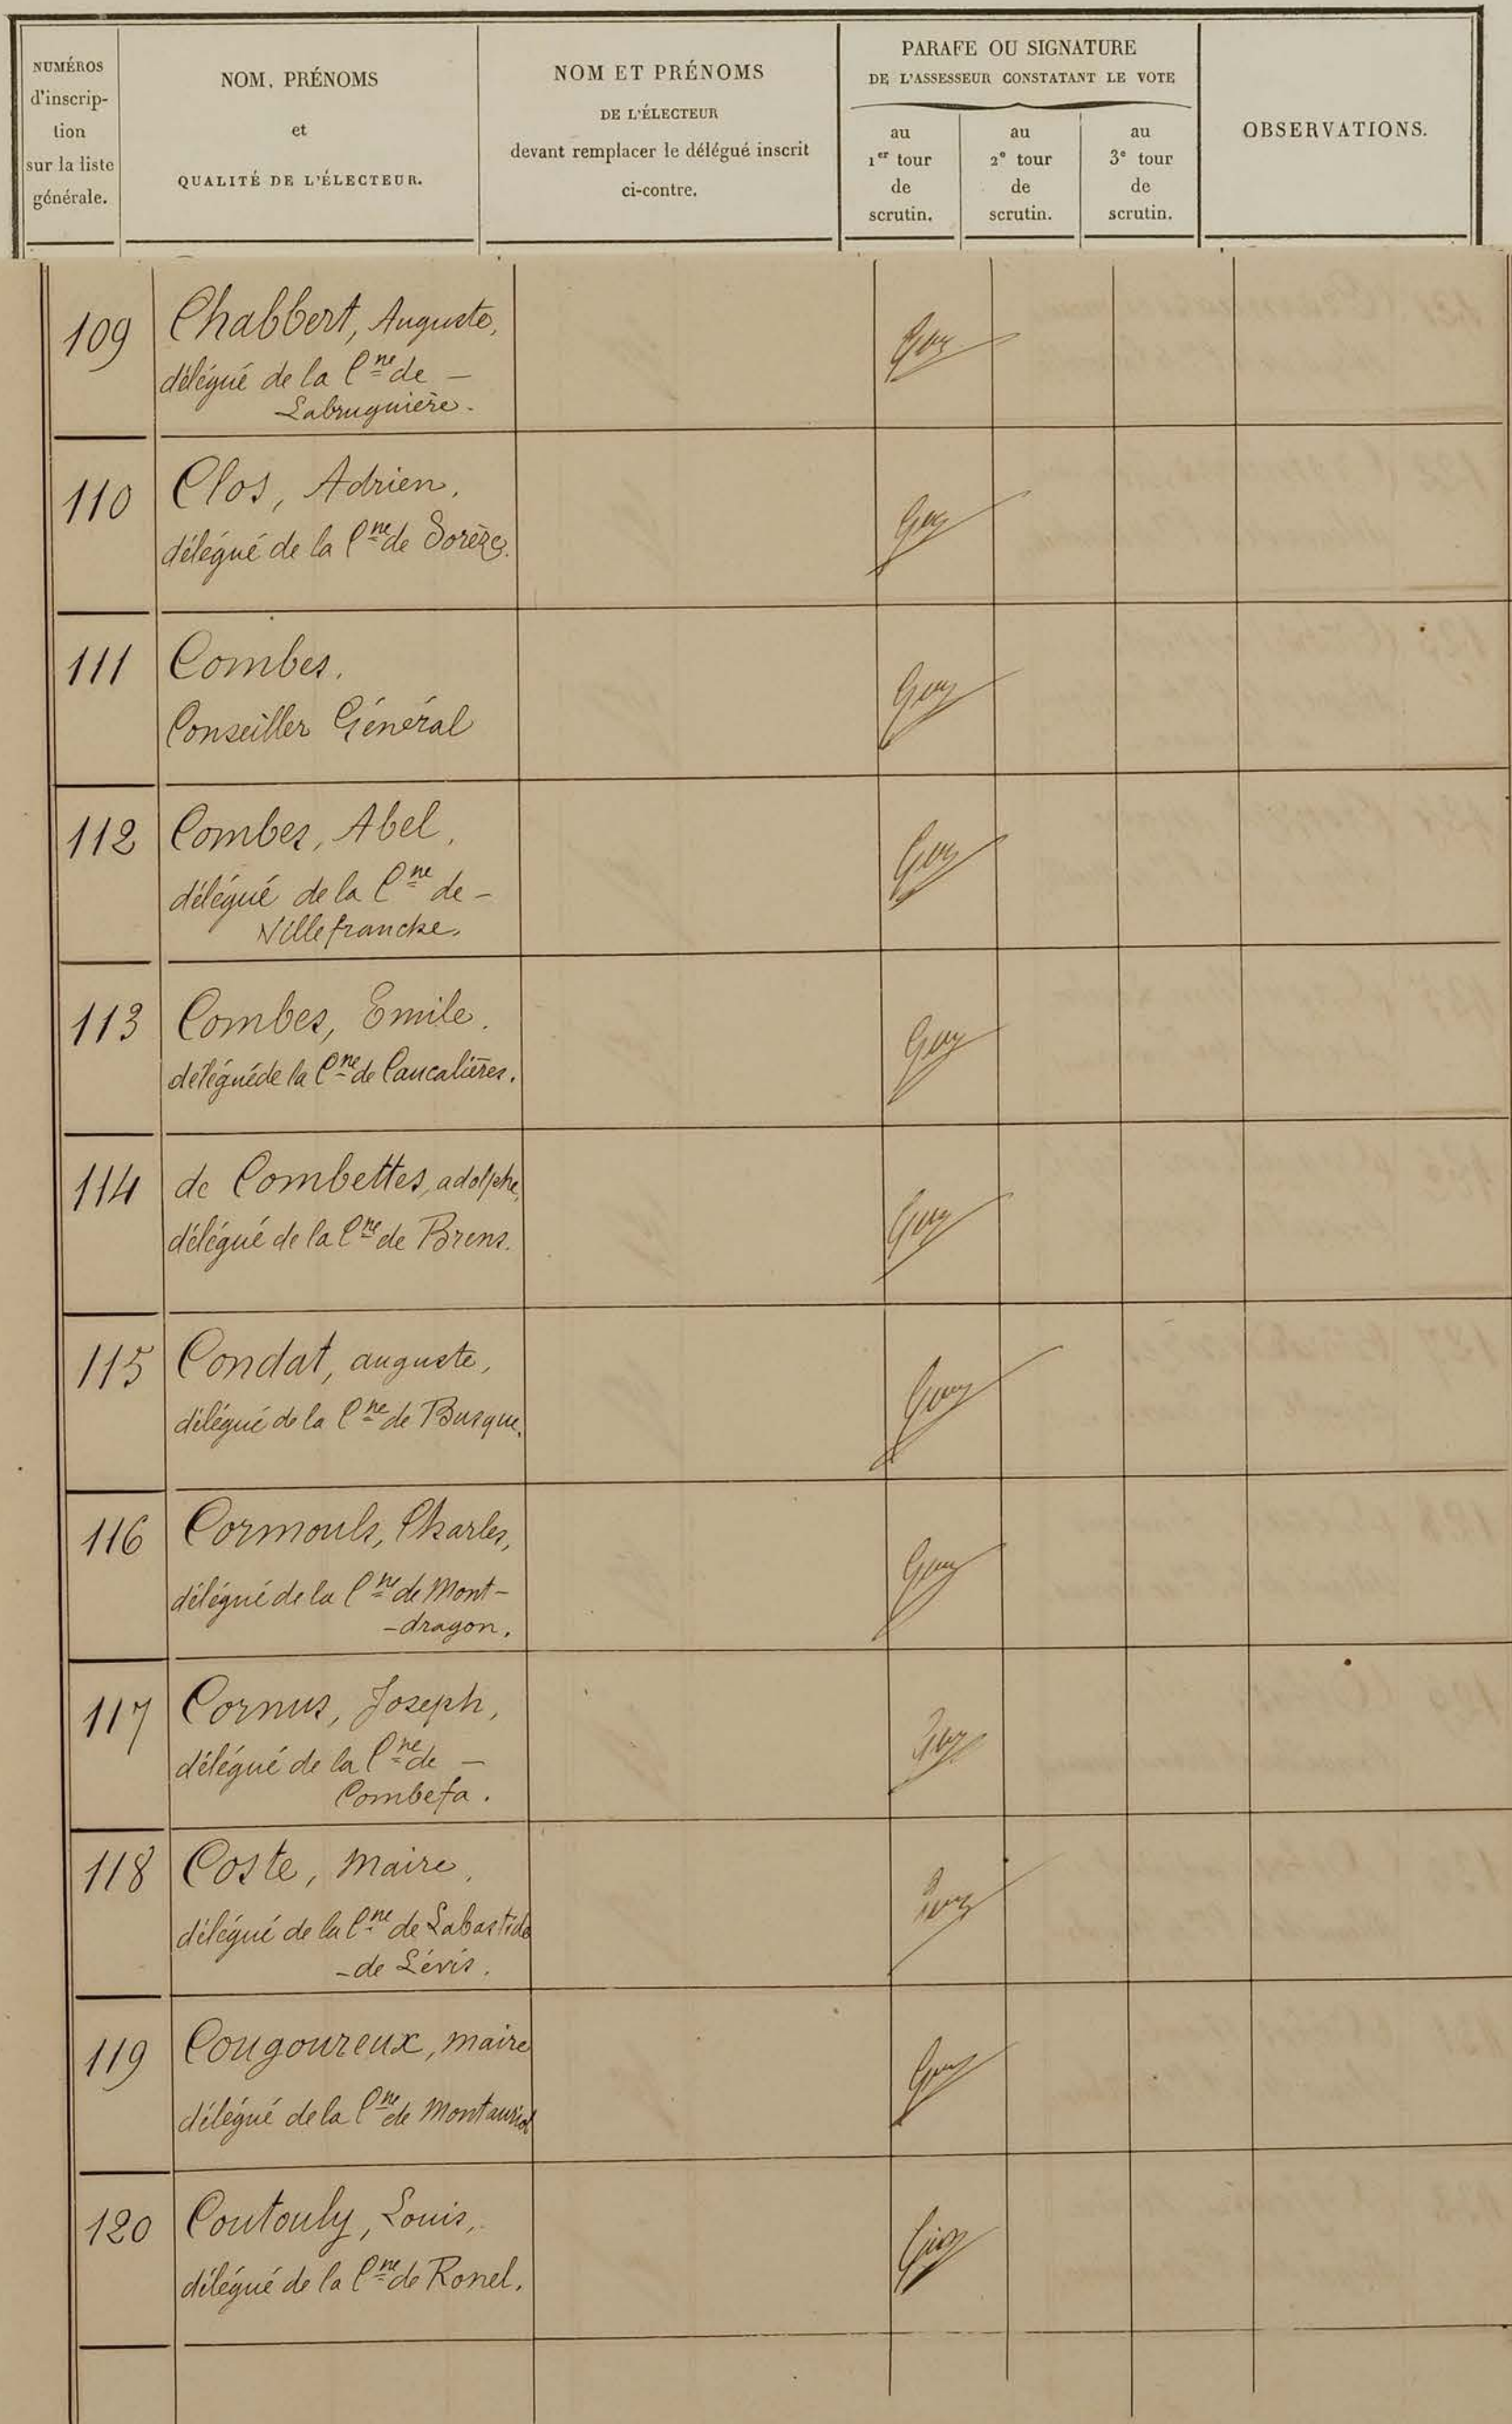 NUMÉROS
d'inscrip-
tion
sur la liste
générale.
NOM, PRÉNOMS
et
QUALITÉ DE L'ÉLECTEUR.
NOM ET PRÉNOMS
DE L'ÉLECTEUR
devant remplacer le délégué inscrit
ci-contre.
PARAFE OU SIGNATURE
DE L'ASSESSEUR CONSTATANT LE VOTE
au
1er tour
de
scrutin.
au
2e tour
de
scrutin.
au
3e tour
de
scrutin.
OBSERVATIONS.
109 Chabbert, Auguste,
délégué de la Cne de —
Labruguière.
110 Clos, Adrien,
délégué de la Cne de Sorèze.
111 Combes,
Conseiller Général
112 Combes, Abel,
délégué de la Cne de -
Villefranche.
113 Combes, Emile.
délégué de la Cne de Caucalières.
114 de Combettes, adolphe,
délégué de la Cne de Brens.
115 Condat, auguste,
délégué de la Cne de Busque.
116 Cormouls, Charles,
délégué de la Cne de Mont-
-dragon.
117 Cornus, Joseph,
délégué de la Cne de —
Combefa.
118 Coste, maire,
délégué de la Cne de Labastide
-de Lévis.
119 Cougoureux, maire
délégué de la Cne de Montauriol
120 Coutouly, Louis,
délégué de la Cne de Ronel.